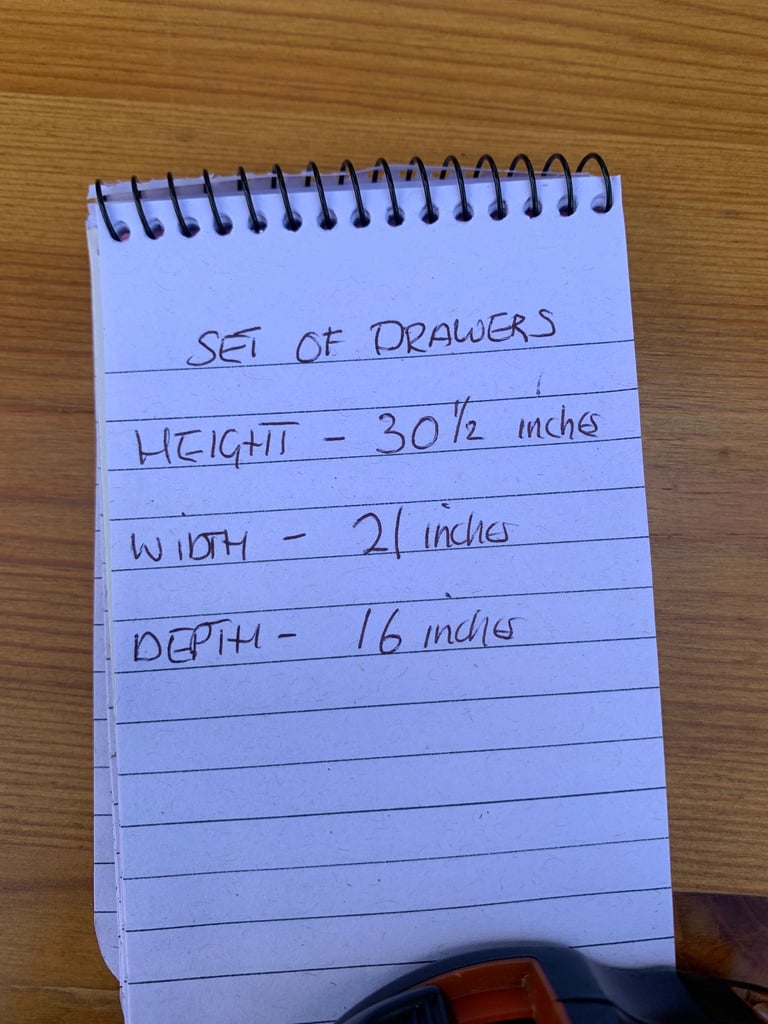 SET OF DRAWERS
HEIGHT - 30 1/2 inches
WIDTH - 21 inches
DEPTH - 16 inches